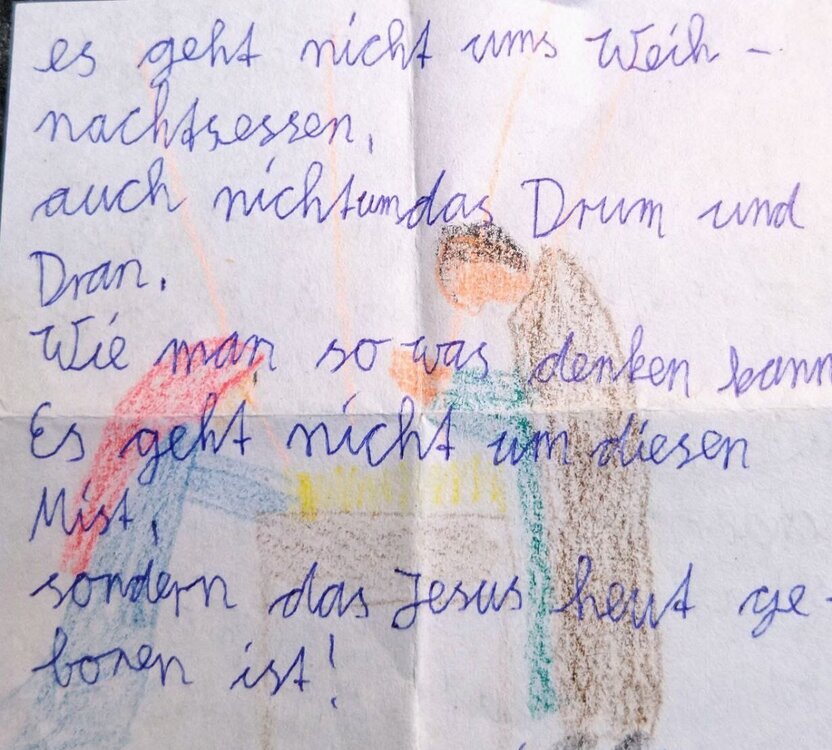 es geht nicht ums Weih -
nachtsessen,
auch nicht um das Drum und
Dran.
Wie man so was denken kann
Es geht nicht um diesen
Mist,
sondern das Jesus heut ge-
boren ist!